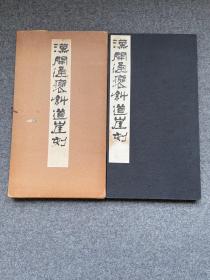 漢開通褒斜道崖刻
漢開通褒斜道崖刻